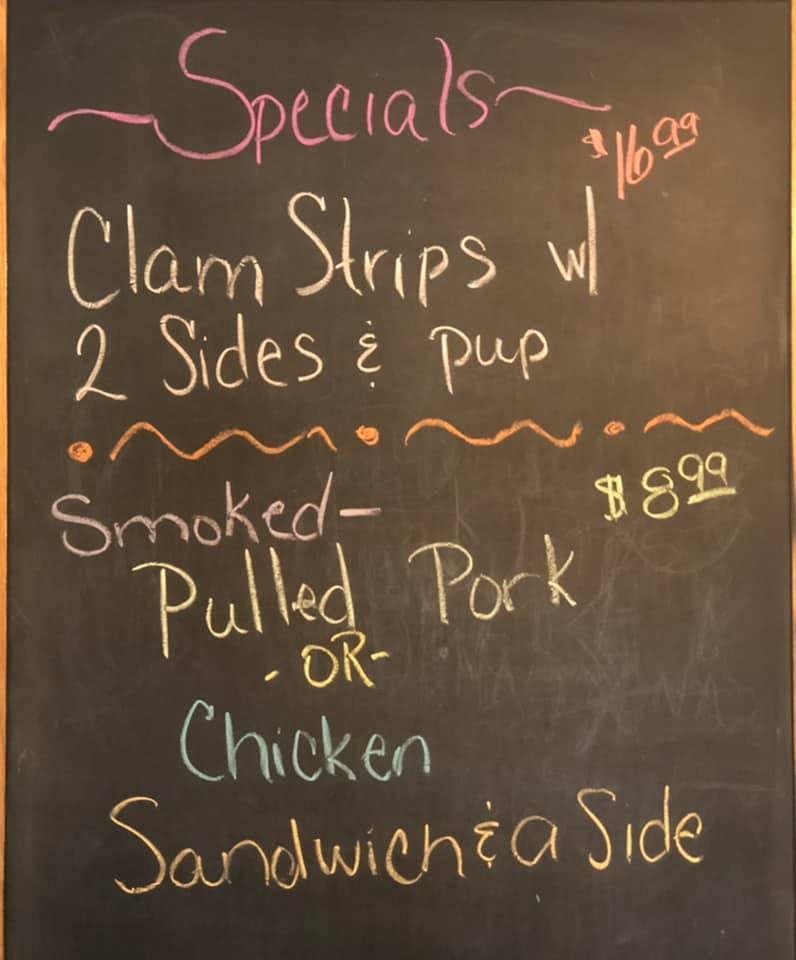 ~Specials~
$16.99
Clam Strips w/
2 Sides & pup
Smoked-
$8.99
Pulled Pork
-OR-
Chicken
Sandwich & a Side